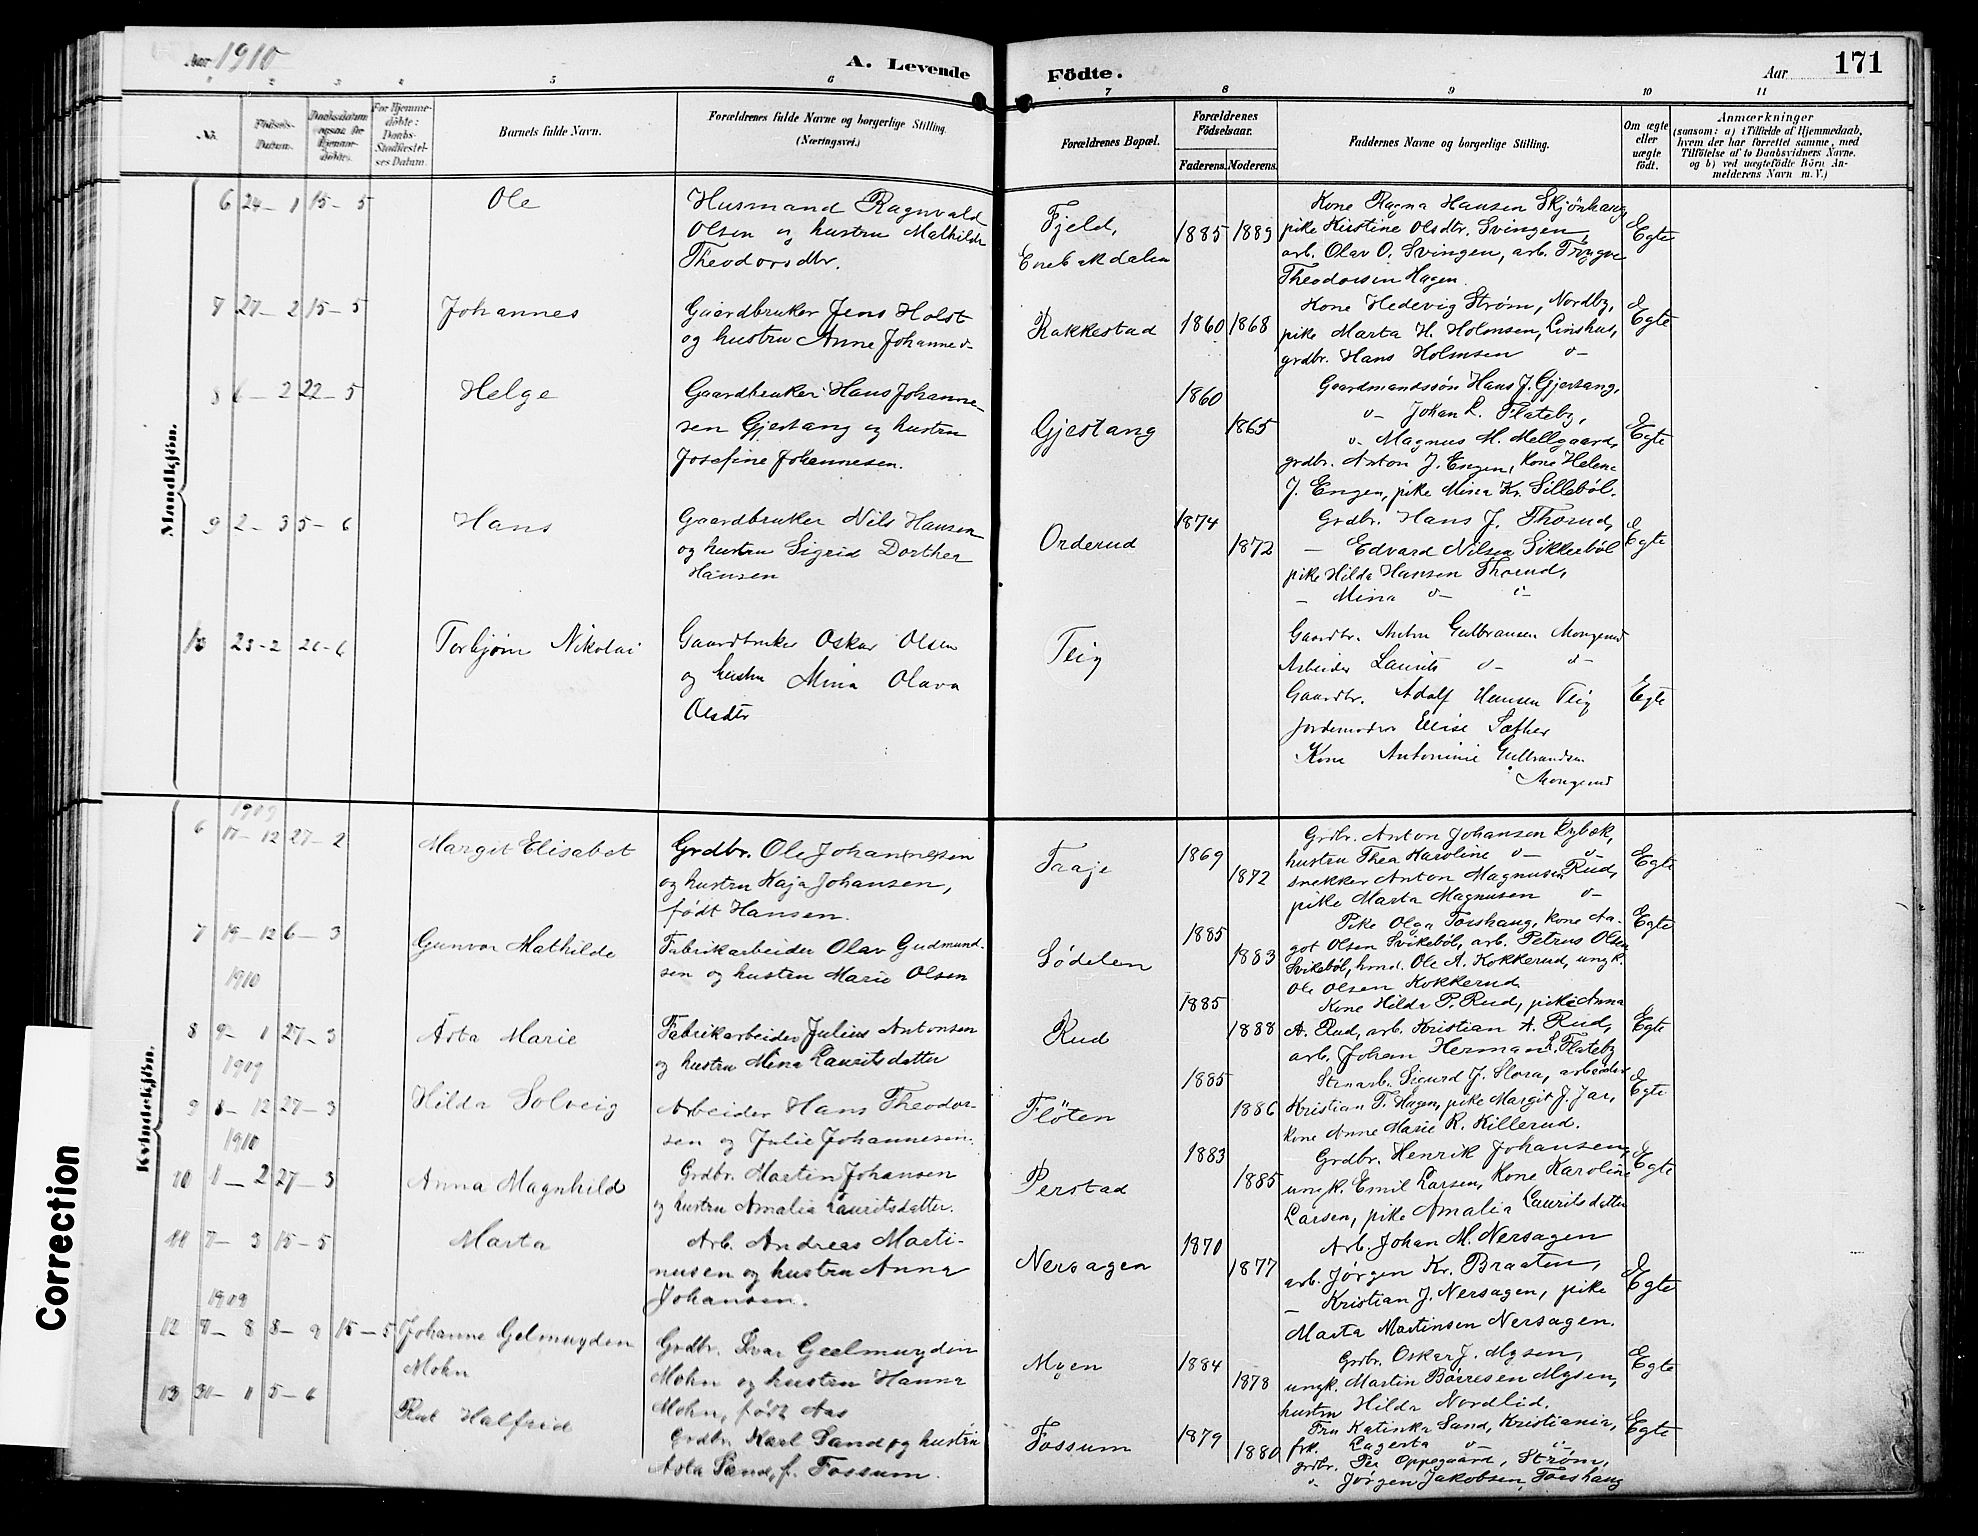 Aar 1910
A. Levende
Födte.
Aar
171
1 2 3 4 5 6 7 8 9 10 11
No.
Födsels-
Datum.
Daabsdatum
ogsaa for
Hjemme-
döbte.
For Hjemme-
döbte:
Daabs-
Stadfæstel-
ses Datum.
Barnets fulde Navn.
Forældrenes fulde Navne og borgerlige Stilling.
(Næringsvei.)
Forældrenes Bopæl.
Forældrenes
Födselsaar.
Faderens. Moderens.
Faddernes Navne og borgerlige Stilling.
Om ægte
eller
uægte
födt.
Anmærkninger
(saasom: a) i Tilfælde af Hjemmedaab,
hvem der har forrettet samme, med
Tilföielse af to Daabsvidners Navne.
og b) ved uægtefödte Börn An-
melderens Navn m. V.)
Mandkjön.
6 24-1 15-5 Ole
Husmand Ragnvald
Olsen og hustru Mathilde
Theodorsdtr.
Fjeld,
Enebakdalen
1885 1889
Kone Ragna Hansen Skjönhaug,
pike Kristine Olsdtr. Svingen,
arb. Olav O. Svingen, arb. Trygve
Theodorsen Hagen.
Egte
7 27-2 15-5 Johannes
Gaardbruker Jens Holst
og hustru Anne Johanne o-
Rakkestad
1860 1868
Kone Hedevig Strøm, Nordby,
pike Marta H. Holmsen, Linshus,
grdbr. Hans Holmsen o-
Egte
8 6-2 22-5 Helge
Gaardbruker Hans Johanne-
sen Gjestang og hustru
Josefine Johannesen.
Gjestang
1860
1865
Gaardmandssön Hans J. Gjestang,
o- Johan L. Flateby,
o- Magnus M. Mellgaard,
grdbr. Anton J. Engen, kone Helene
J. Engen, pike Mina Kr. Silleböl.
Egte
9 2-3 5-6 Hans
Gaardbruker Nils Hansen
og hustru Sigrid Dorthea
Hansen
Orderud
1874
1872
Grdbr. Hans J. Thorud,
- Edvard Nilsen Sikkeböl
pike Hilda Hansen Thorud,
- Mina o- o-
Egte
10 23-2 26-6 Torbjørn Nikolai
Gaardbruker Oskar Olsen
og hustru Mina Olava
Olsdtr
Teig
Gaardbr. Anton Gulbransen Mongerud
Arbeider Laurits o- o-
Gaardbr. Adolf Hansen Teig
Jordemoder Elise Sæther
Kone Antonine Gulbrandsen
Mongerud
Egte
Kvindekjön.
1909
6 17-12 27-2 Margit Elisabet
Grdbr. Ole Johannesen
og hustru Kaja Johansen,
født Hansen.
Traje
1869
1872
Grdbr. Anton Johansen Dybæk,
hustru Thea Karoline o- o-
snekker Anton Magnusen Rud,
pike Marta Magnusen o-
Egte
7 19-12 6-3 Gunvor Mathilde
Fabrikarbeider Olav Gudmund-
sen og hustru Marie Olsen
Södelen
1885
1883
Pike Olga Torshaug, kone Aa-
got Olsen Svikeböl, arb. Petrus Olsen
Svikeböl, hmd. Ole A. Kokkerud, ungk.
Ole Olsen Kokkerud.
Egte
1910
8 9-1 27-3 Asta Marie
Fabrikarbeider Julius Antonsen
og hustru Mina Lauritsdatter
Rud
1885
1888
Kone Hilda P. Rud, pike Anna
A. Rud, arb. Kristian A. Rud,
arb. Johan Herman L. Flateby
Egte
1909
9 8-12 27-3 Hilda Solveig
Arbeider Hans Theodor-
sen og Julie Johannesen.
Flöten
1885
1886
Stenarb. Sigurd J. Slora, arbeider
Kristian T. Hagen, pike Margit J. Jar,
kone Anne Marie R. Killerud.
Egte
1910
10 1-2 27-3 Anna Magnhild
Grdbr. Martin Johansen
og hustru Amalia Lauritsdatter.
Perstad
1883
1885
Grdbr. Henrik Johansen,
ungk. Emil Larsen, kone Karoline
Larsen, pike Amalia Lauritsdatter
Egte
11 7-3 15-5 Marta
Arb. Andreas Marti-
nusen og hustru Anna
Johansen.
Nersagen
1870
1877
Arb. Johan M. Nersagen
arb. Jørgen Kr. Braaten,
- Kristian J. Nersagen, pike
Marta Martinsen Nersagen.
Egte
1909
12 7-8 8-9 15-5 Johanne Gelmuyden
Mohn
Grdbr. Ivar Geelmuyden
Mohn og hustru Hanna
Mohn, født Aas
Myen
1884
1878
Grdbr. Oskar J. Mysen,
ungk. Martin Börresen Mysen,
hustru Hilda Nordlid.
Egte
13 31-1 5-6 Rut Halfrid
Grdbr. Karl Sand og hustru
Asta Sand, f. Fossum.
Fossum
1879
1880
Fru Katinka Sand, Kristiania,
frk. Lagerta o- o-
grdbr. Per Oppegaard, Strøm,
o- Jørgen Jakobsen, Torshaug
Egte
Correction